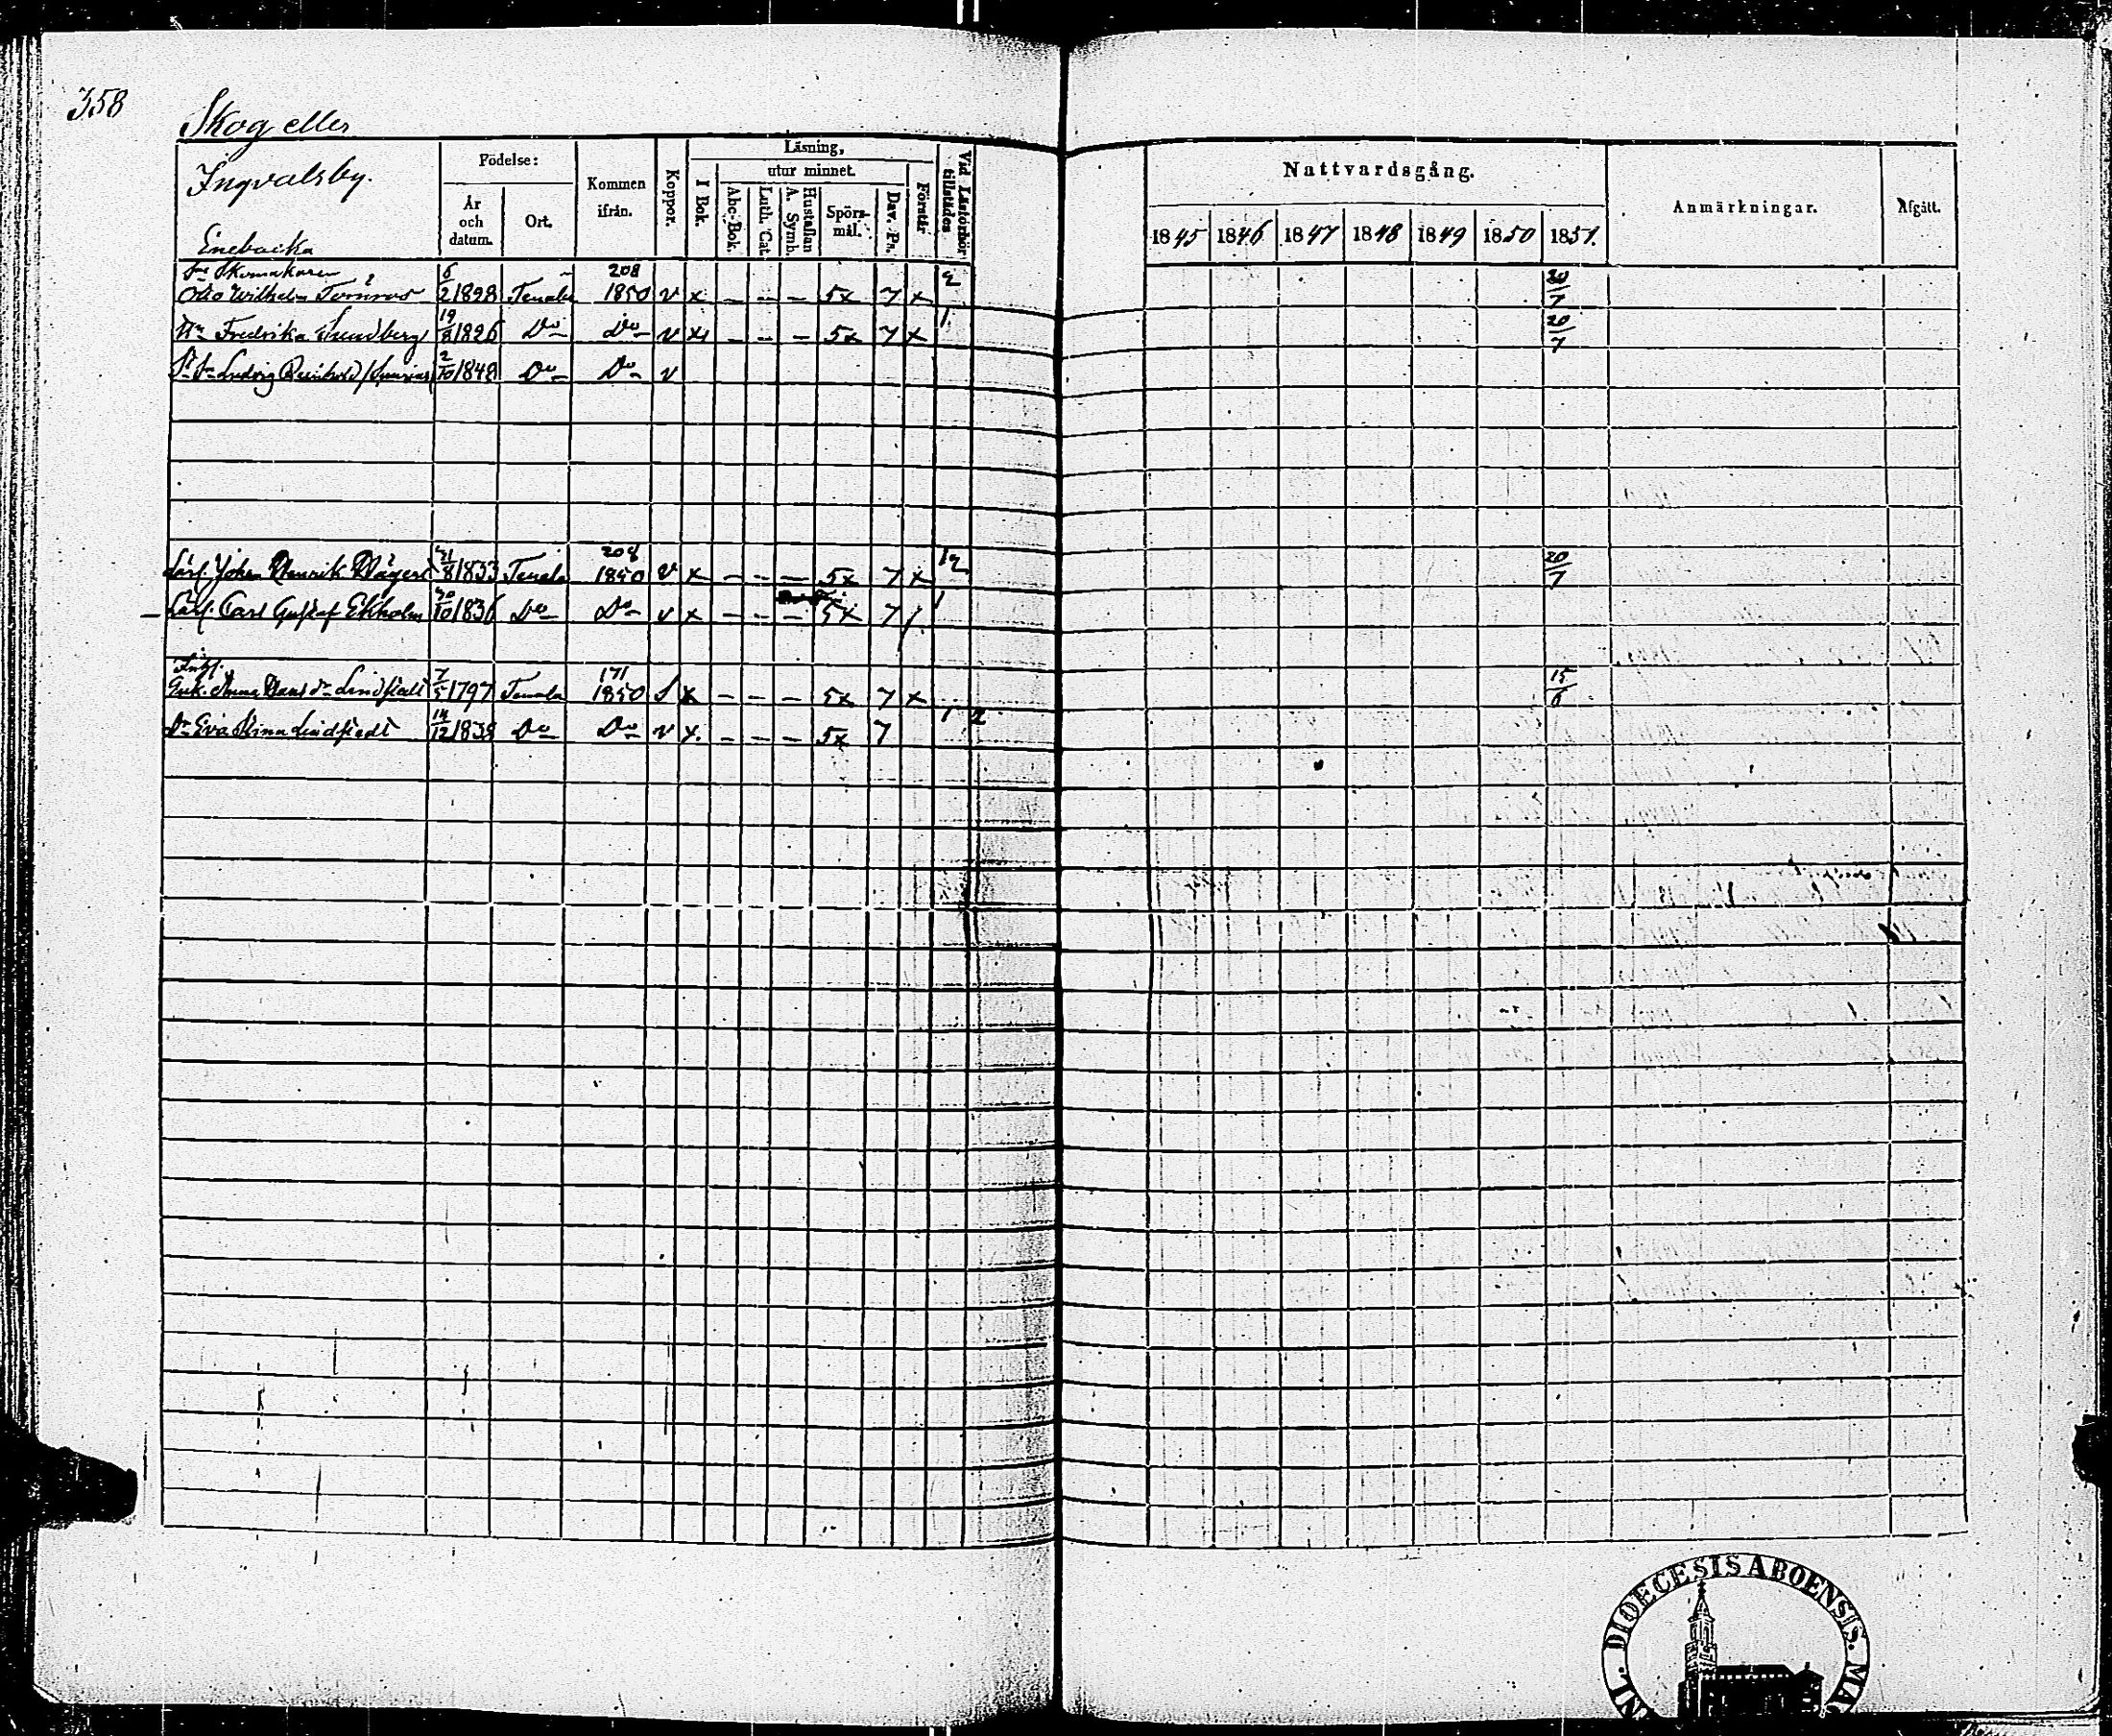 358
Skog eller
Ingvalsby.
Enebacka
Födelse:
År och datum.
Ort.
Kommen ifrån.
Koppor.
Läsning,
I Bok.
utur minnet.
Abc-Bok.
Luth. Cat.
Hustaflan A. Symb.
Spörsmål.
Dav. Ps.
Förstår
Vid Läsförhör tillstädes
Nattvardsgång.
1845 1846 1847 1848 1849 1850 1851.
Anmärkningar.
Afgått.
Skomakaren 6 208 2 20
Otto Wilhelm 2 1828 Tenala 1850 v x – – – 5x 7 x 7
Hu Fredrika Sundberg 19/8 1826 Do Do v x – – – 5x 7 x 1 20/7
Ludvig Reinhold 2/10 1849 Do Do v
208
Lärl. Johan Henrik 21/8 1833 Tenala 1850 v x – – – 5x 7 x 12 20/7
Lärl. Carl Gustaf Ekholm 20/10 1836 Do Do v x – – – 5x 7 / 1
Inh. 171
Enk. Anna Hansdr Lindstedt 7/5 1797 Tenala 1850 x – – – 5x 7 x 15/6
Dr Eva Stina Lindstedt 14/12 1839 Do Do v x. – – – 5x 7 1 2
DIOECESIS ABOENSIS.